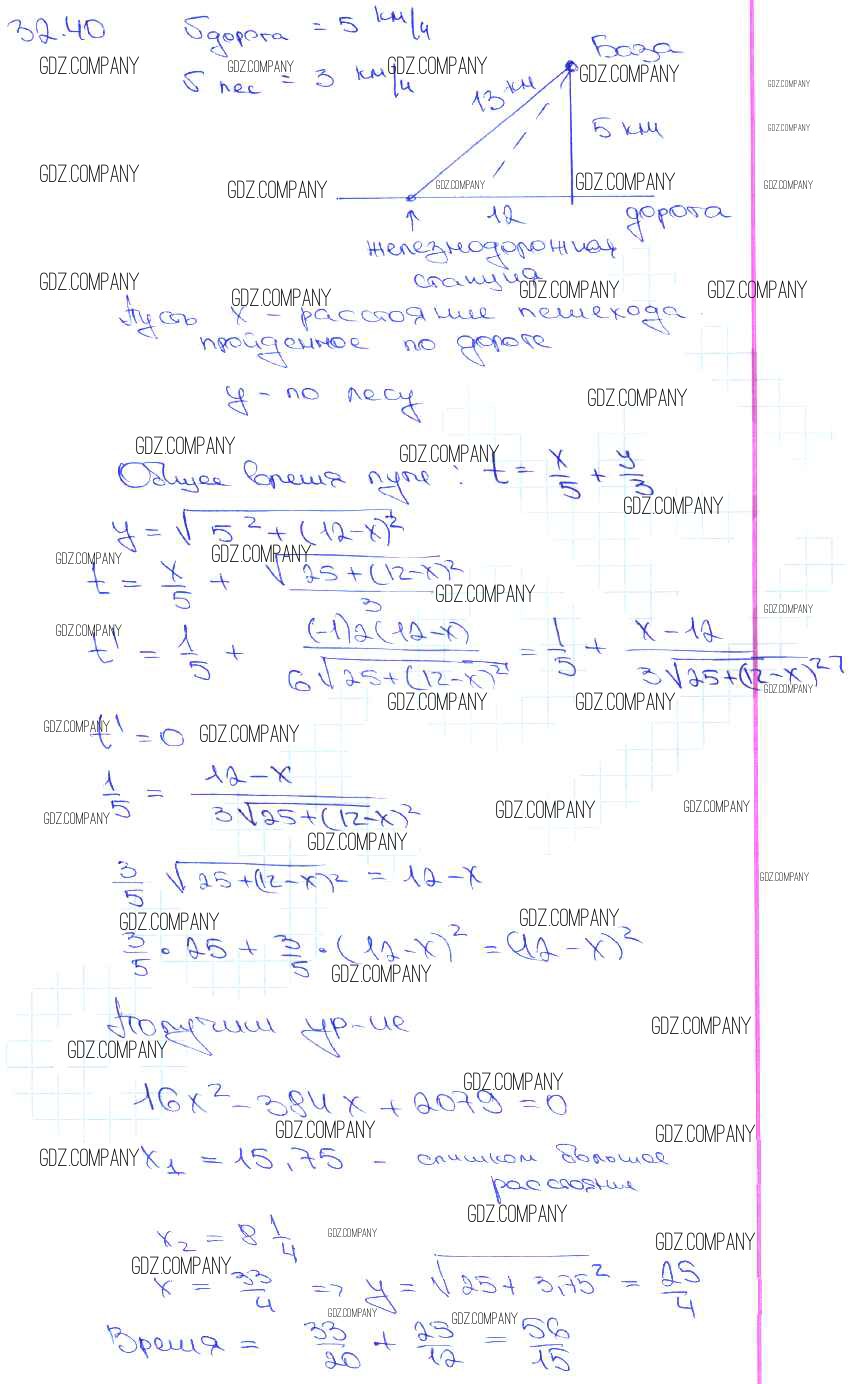 32.40 υ дорога = 5 км/ч
υ лес = 3 км/ч
База
13 км
5 км
12
дорога
железнодорожная
станция
Пусть x – расстояние пешехода
пройденное по дороге
y – по лесу
Общее время пути: t = x/5 + y/3
y = √(5² + (12-x)²)
t = x/5 + √(25+(12-x)²)/3
t' = 1/5 + (-1)2(12-x)/(6√(25+(12-x)²)) = 1/5 + (x-12)/(3√(25+(12-x)²))
t' = 0
1/5 = (12-x)/(3√(25+(12-x)²))
3/5 √(25+(12-x)²) = 12-x
3/5 · 25 + 3/5 · (12-x)² = (12-x)²
Получим ур-ие
16x² - 384x + 2079 = 0
x₁ = 15,75 – слишком большое
расстояние
x₂ = 8 1/4
x = 33/4 => y = √(25 + 3,75²) = 25/4
Время = 33/20 + 25/12 = 56/15
GDZ.COMPANY